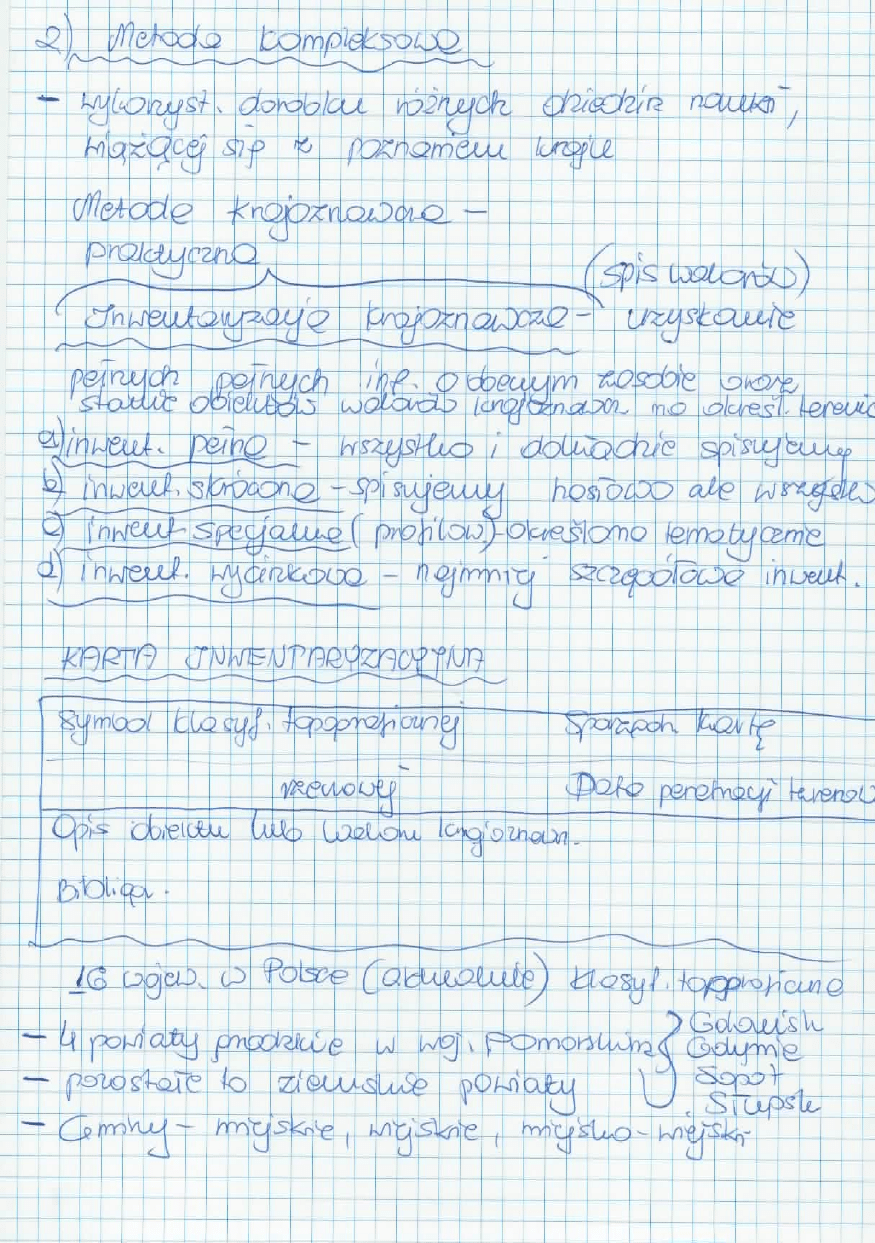 2) Metoda kompleksowa
- wykorzyst. dorobku różnych dziedzin nauki,
wiążącej się z poznaniem kraju
Metoda krajoznawcza -
praktyczna
(spis walorów)
Inwentaryzacja krajoznawcza - uzyskanie
pełnych pełnych inf. o obecnym zasobie oraz
stanie obiektów walorów krajoznawcz na określ. terenie
a) inwent. pełna - wszystko i dokładnie spisujemy
b) inwent. skrócona - spisujemy hasłowo ale wszystko
c) inwent specjalne (profilow)-określona tematycznie
d) inwent. wycinkowa - najmniej szczegółowa inwent.
KARTA INWENTARYZACYJNA
Symbol klasyf. topograficznej Sporządz kartę
rzeczowej Data penetracji terenow
Opis obiektu lub waloru krajoznaw.
Bibliogr.
16 wojew. w Polsce (aktualnie) klasyf. topograficzna
- 4 powiaty grodzkie w woj. pomorskim { Gdańsk
Gdynia
- pozostałe to ziemskie powiaty Sopot
Słupsk
- Gminy - miejskie, wiejskie, miejsko-wiejski